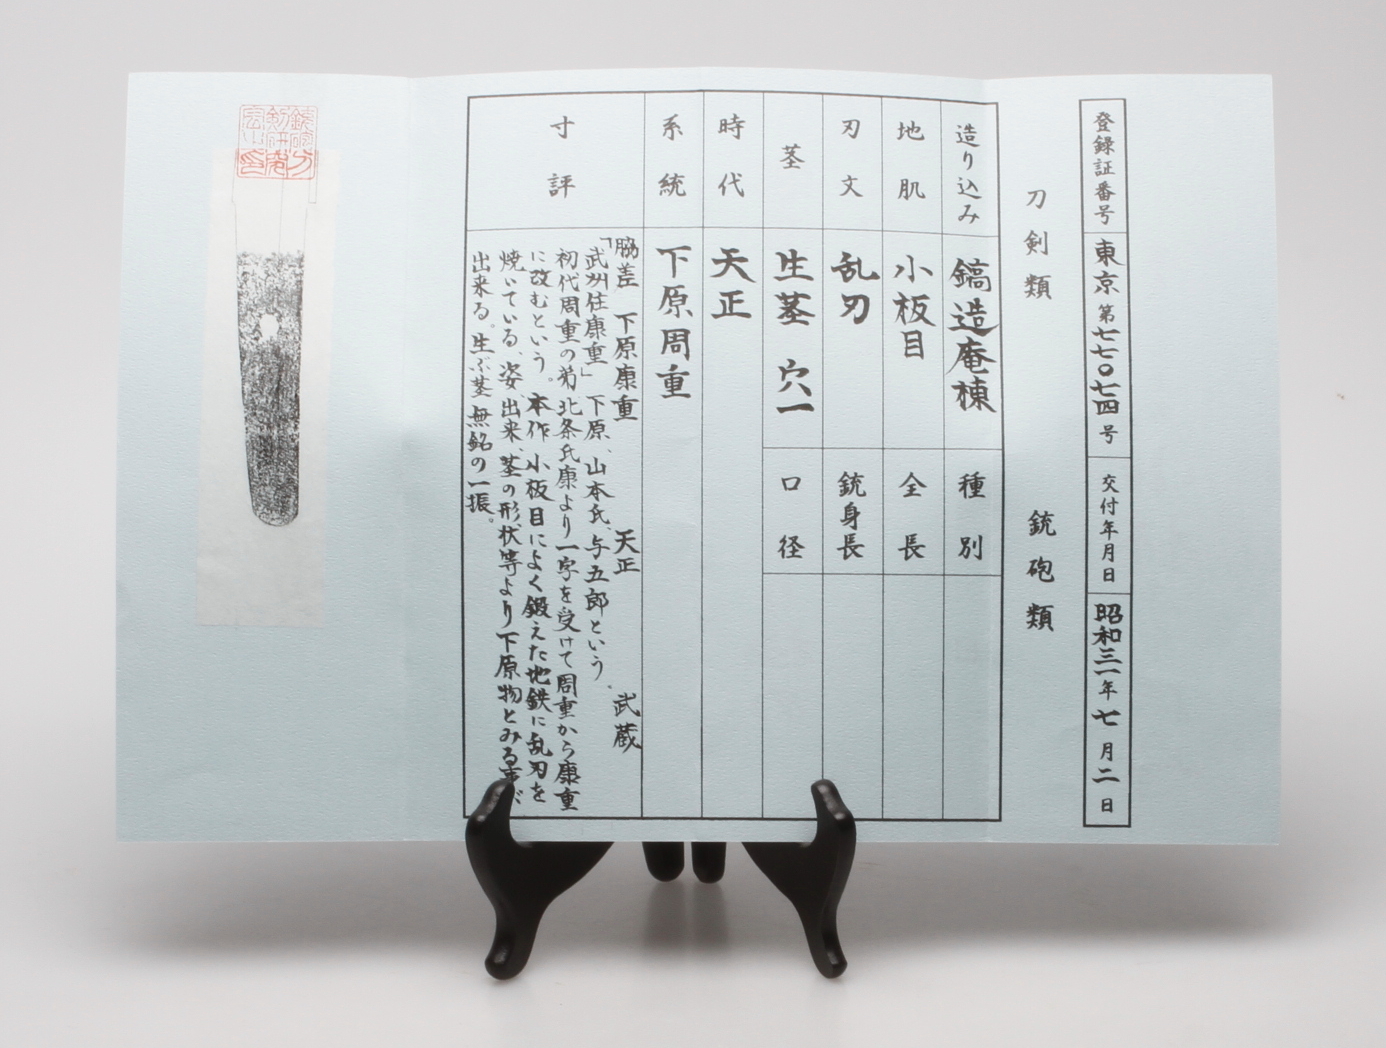 登録証番号 東京 第七七〇七四号 交付年月日 昭和三一年七月二日
刀剣類 銃砲類
造り込み 鎬造庵棟 種別
地肌 小板目 全長
刃文 乱刃 銃身長
茎 生茎 穴一 口径
時代 天正
系統 下原周重
寸評
脇差 下原康重 天正 武蔵
「武州住康重」下原、山本氏、与五郎という、
初代周重の弟 北条氏康より一字を受けて周重から康重
に改むという。本作 小板目によく鍛えた地鉄に乱刃を
焼いている、姿出来、茎の形状等より下原物とみる事が
出来る。生ぶ茎無銘の一振。